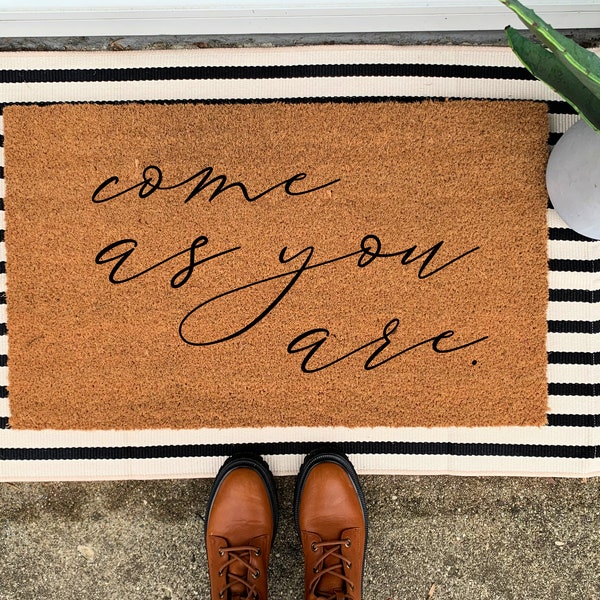 come
as you
are.